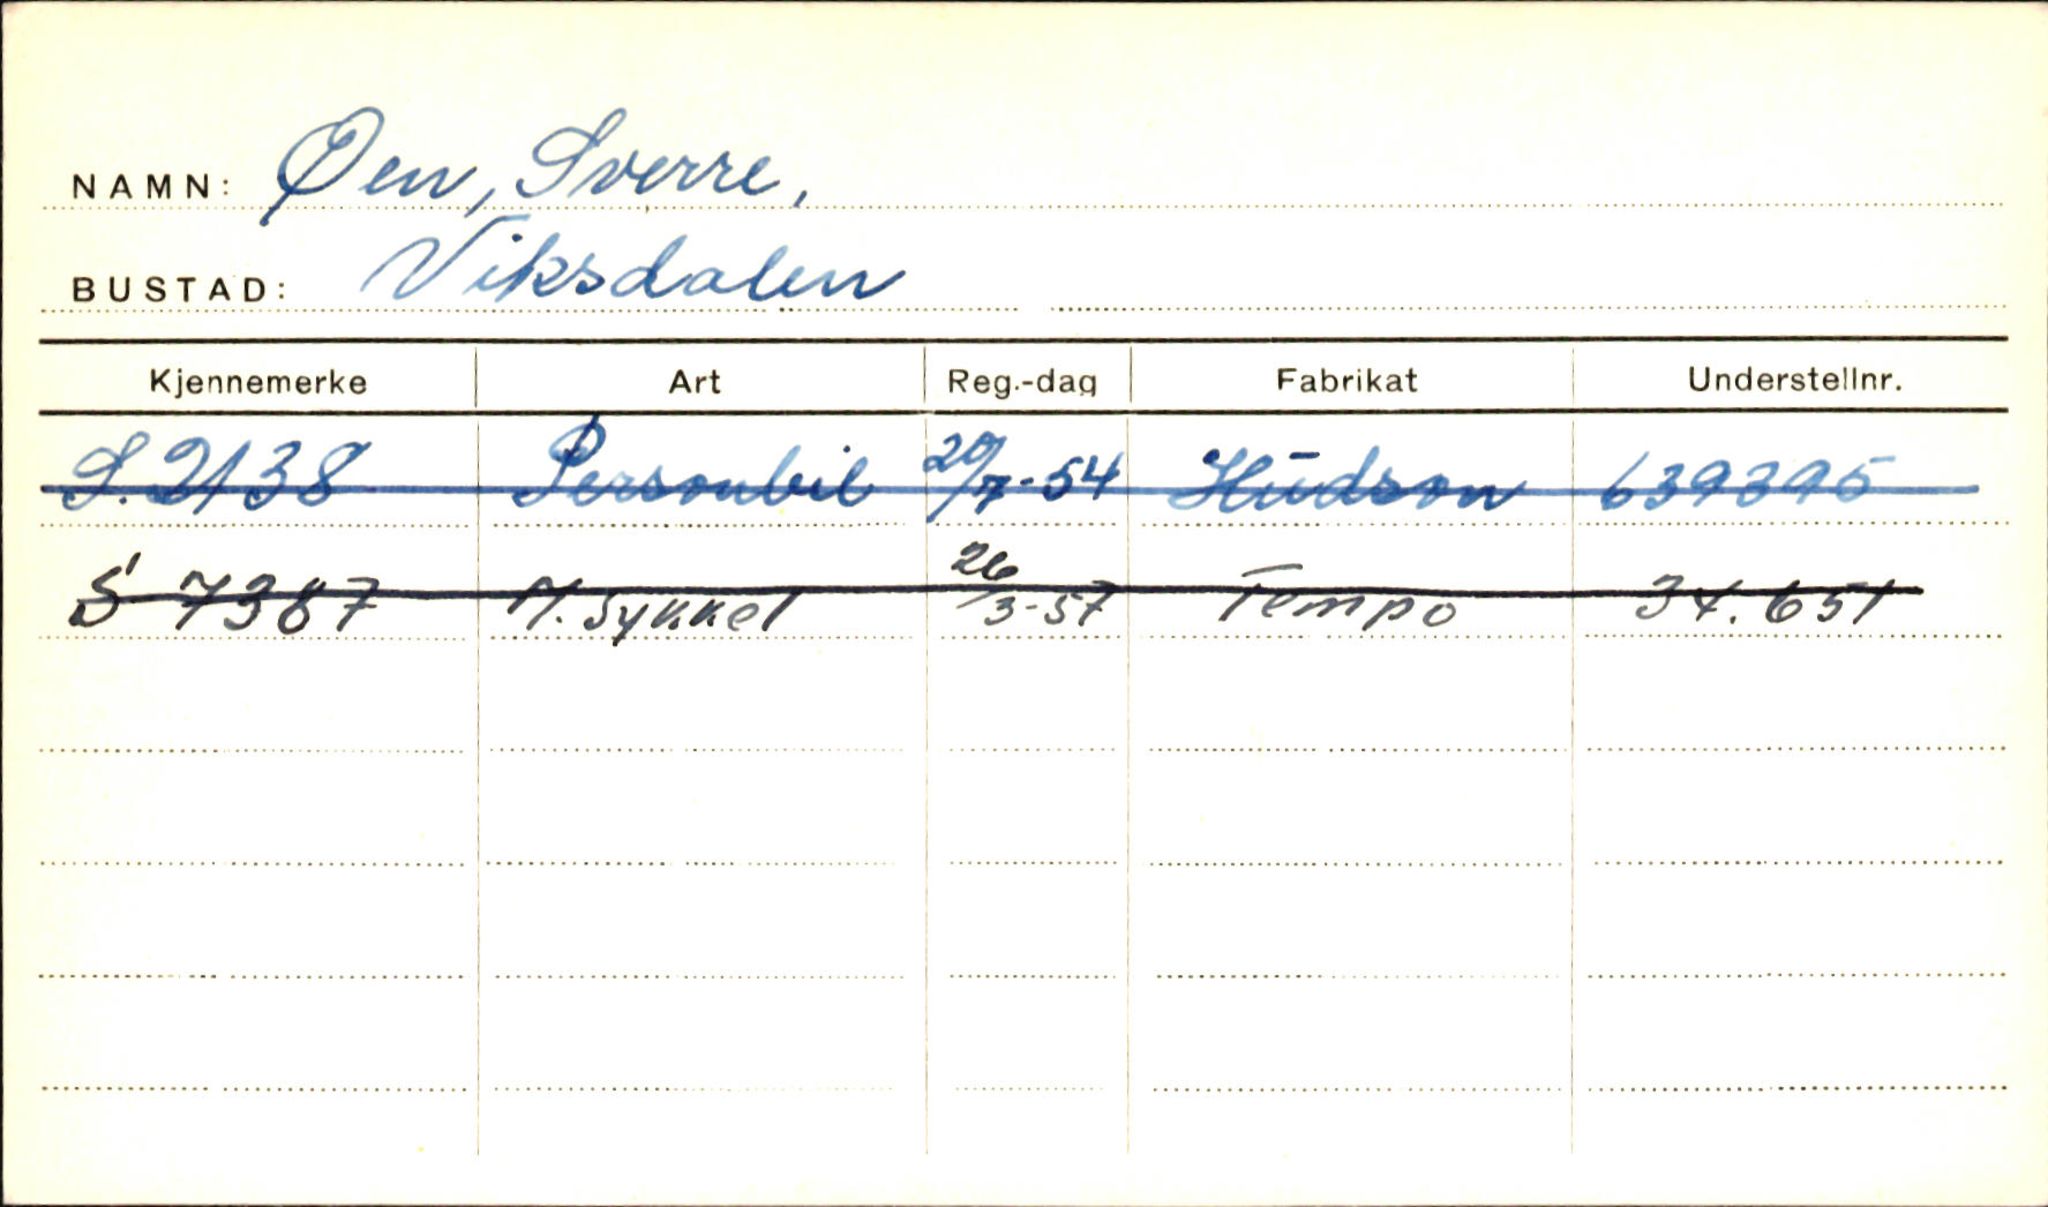 NAMN: Øen, Sverre,
BUSTAD: Viksdalen
Kjennemerke Art Reg.-dag Fabrikat Understellnr.
S. 2138 Personbil 20/7-54 Hudson 639395
S 7387 M. sykkel 26/3-57 Tempo 34.651